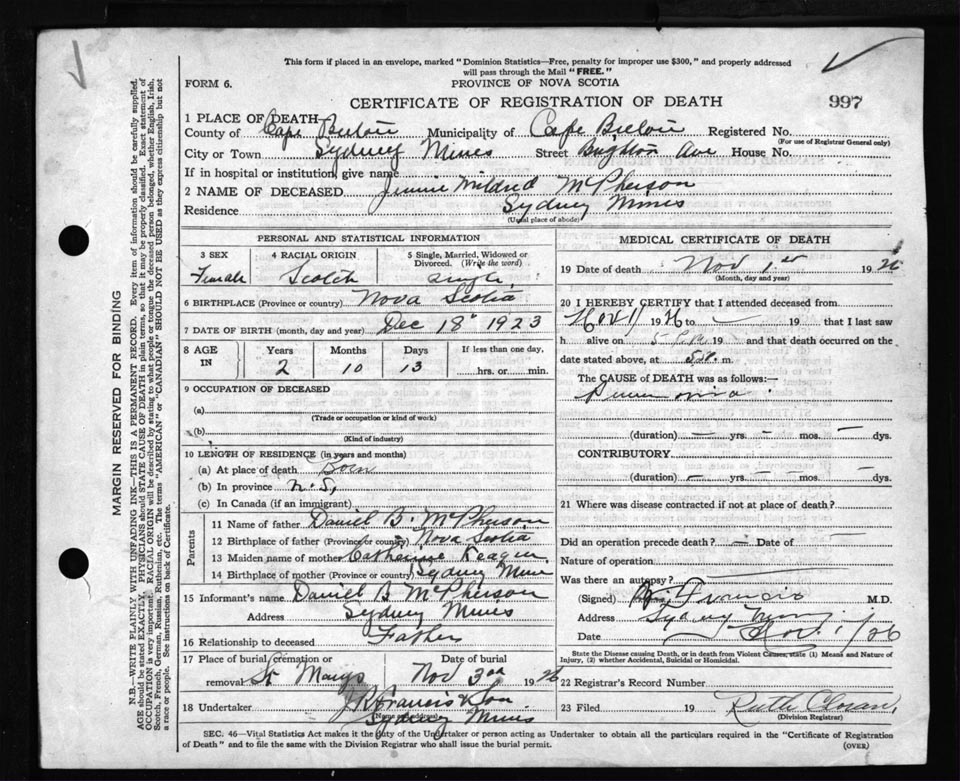 This form if placed in an envelope, marked "Dominion Statistics—Free, penalty for improper use $300," and properly addressed
will pass through the Mail "FREE."
FORM 6. PROVINCE OF NOVA SCOTIA
CERTIFICATE OF REGISTRATION OF DEATH 997
1 PLACE OF DEATH—
County of Cape Breton Municipality of Cape Breton Registered No.
(For use of Registrar General only)
City or Town Sydney Mines Street Brighton Ave House No.
If in hospital or institution, give name
2 NAME OF DECEASED Jennie Mildred McPherson
Residence Sydney Mines
(Usual place of abode)
PERSONAL AND STATISTICAL INFORMATION
3 SEX 4 RACIAL ORIGIN 5 Single, Married, Widowed or Divorced. (Write the word)
Female Scotch Single
6 BIRTHPLACE (Province or country) Nova Scotia
7 DATE OF BIRTH (month, day and year) Dec 18" 1923
8 AGE IN Years Months Days If less than one day,
2 10 13 hrs. or min.
9 OCCUPATION OF DECEASED
(a)
(Trade or occupation or kind of work)
(b)
(Kind of industry)
10 LENGTH OF RESIDENCE (in years and months)
(a) At place of death Born
(b) In province N.S.
(c) In Canada (if an immigrant)
Parents
11 Name of father Daniel B. McPherson
12 Birthplace of father (Province or country) Nova Scotia
13 Maiden name of mother Catherine
14 Birthplace of mother (Province or country) Sydney Mines
15 Informant's name Daniel B McPherson
Address Sydney Mines
16 Relationship to deceased Father
17 Place of burial, cremation or Date of burial
removal St Marys Nov 3rd 1926
18 Undertaker Francis & Son
(Name and address)
Sydney Mines
MEDICAL CERTIFICATE OF DEATH
19 Date of death Nov 1st 1926
(Month, day and year)
20 I HEREBY CERTIFY that I attended deceased from
Nov 1 1926 to — 19 that I last saw
h alive on 19 and that death occurred on the
date stated above, at m.
The CAUSE of DEATH was as follows:—
Pneumonia
(duration) — yrs. — mos. — dys.
CONTRIBUTORY
(duration) — yrs. — mos. — dys.
21 Where was disease contracted if not at place of death?
Did an operation precede death? — Date of —
Nature of operation
Was there an autopsy?
(Signed) Francis M.D.
Address Sydney Mines
Date Nov. 1/26
State the Disease causing Death, or in death from Violent Causes, state (1) Means and Nature of
Injury, (2) whether Accidental, Suicidal or Homicidal.
22 Registrar's Record Number
23 Filed 19 Ruth
(Division Registrar)
SEC. 46—Vital Statistics Act makes it the duty of the Undertaker or person acting as Undertaker to obtain all the particulars required in the "Certificate of Registration
of Death" and to file the same with the Division Registrar who shall issue the burial permit. (OVER)
MARGIN RESERVED FOR BINDING
N.B.—WRITE PLAINLY WITH UNFADING INK—THIS IS A PERMANENT RECORD. Every item of information should be carefully supplied.
AGE should be stated EXACTLY. PHYSICIANS should STATE CAUSE OF DEATH in plain terms, so that it may be properly classified. Exact statement of
OCCUPATION is very important. RACIAL ORIGIN will be described by stating to what people or tongue the deceased person belonged, whether English, Irish,
Scotch, French, German, Russian, Ruthenian, etc. The terms "AMERICAN" or "CANADIAN" SHOULD NOT BE USED as they express citizenship but not
a race or people. See instructions on back of Certificate.